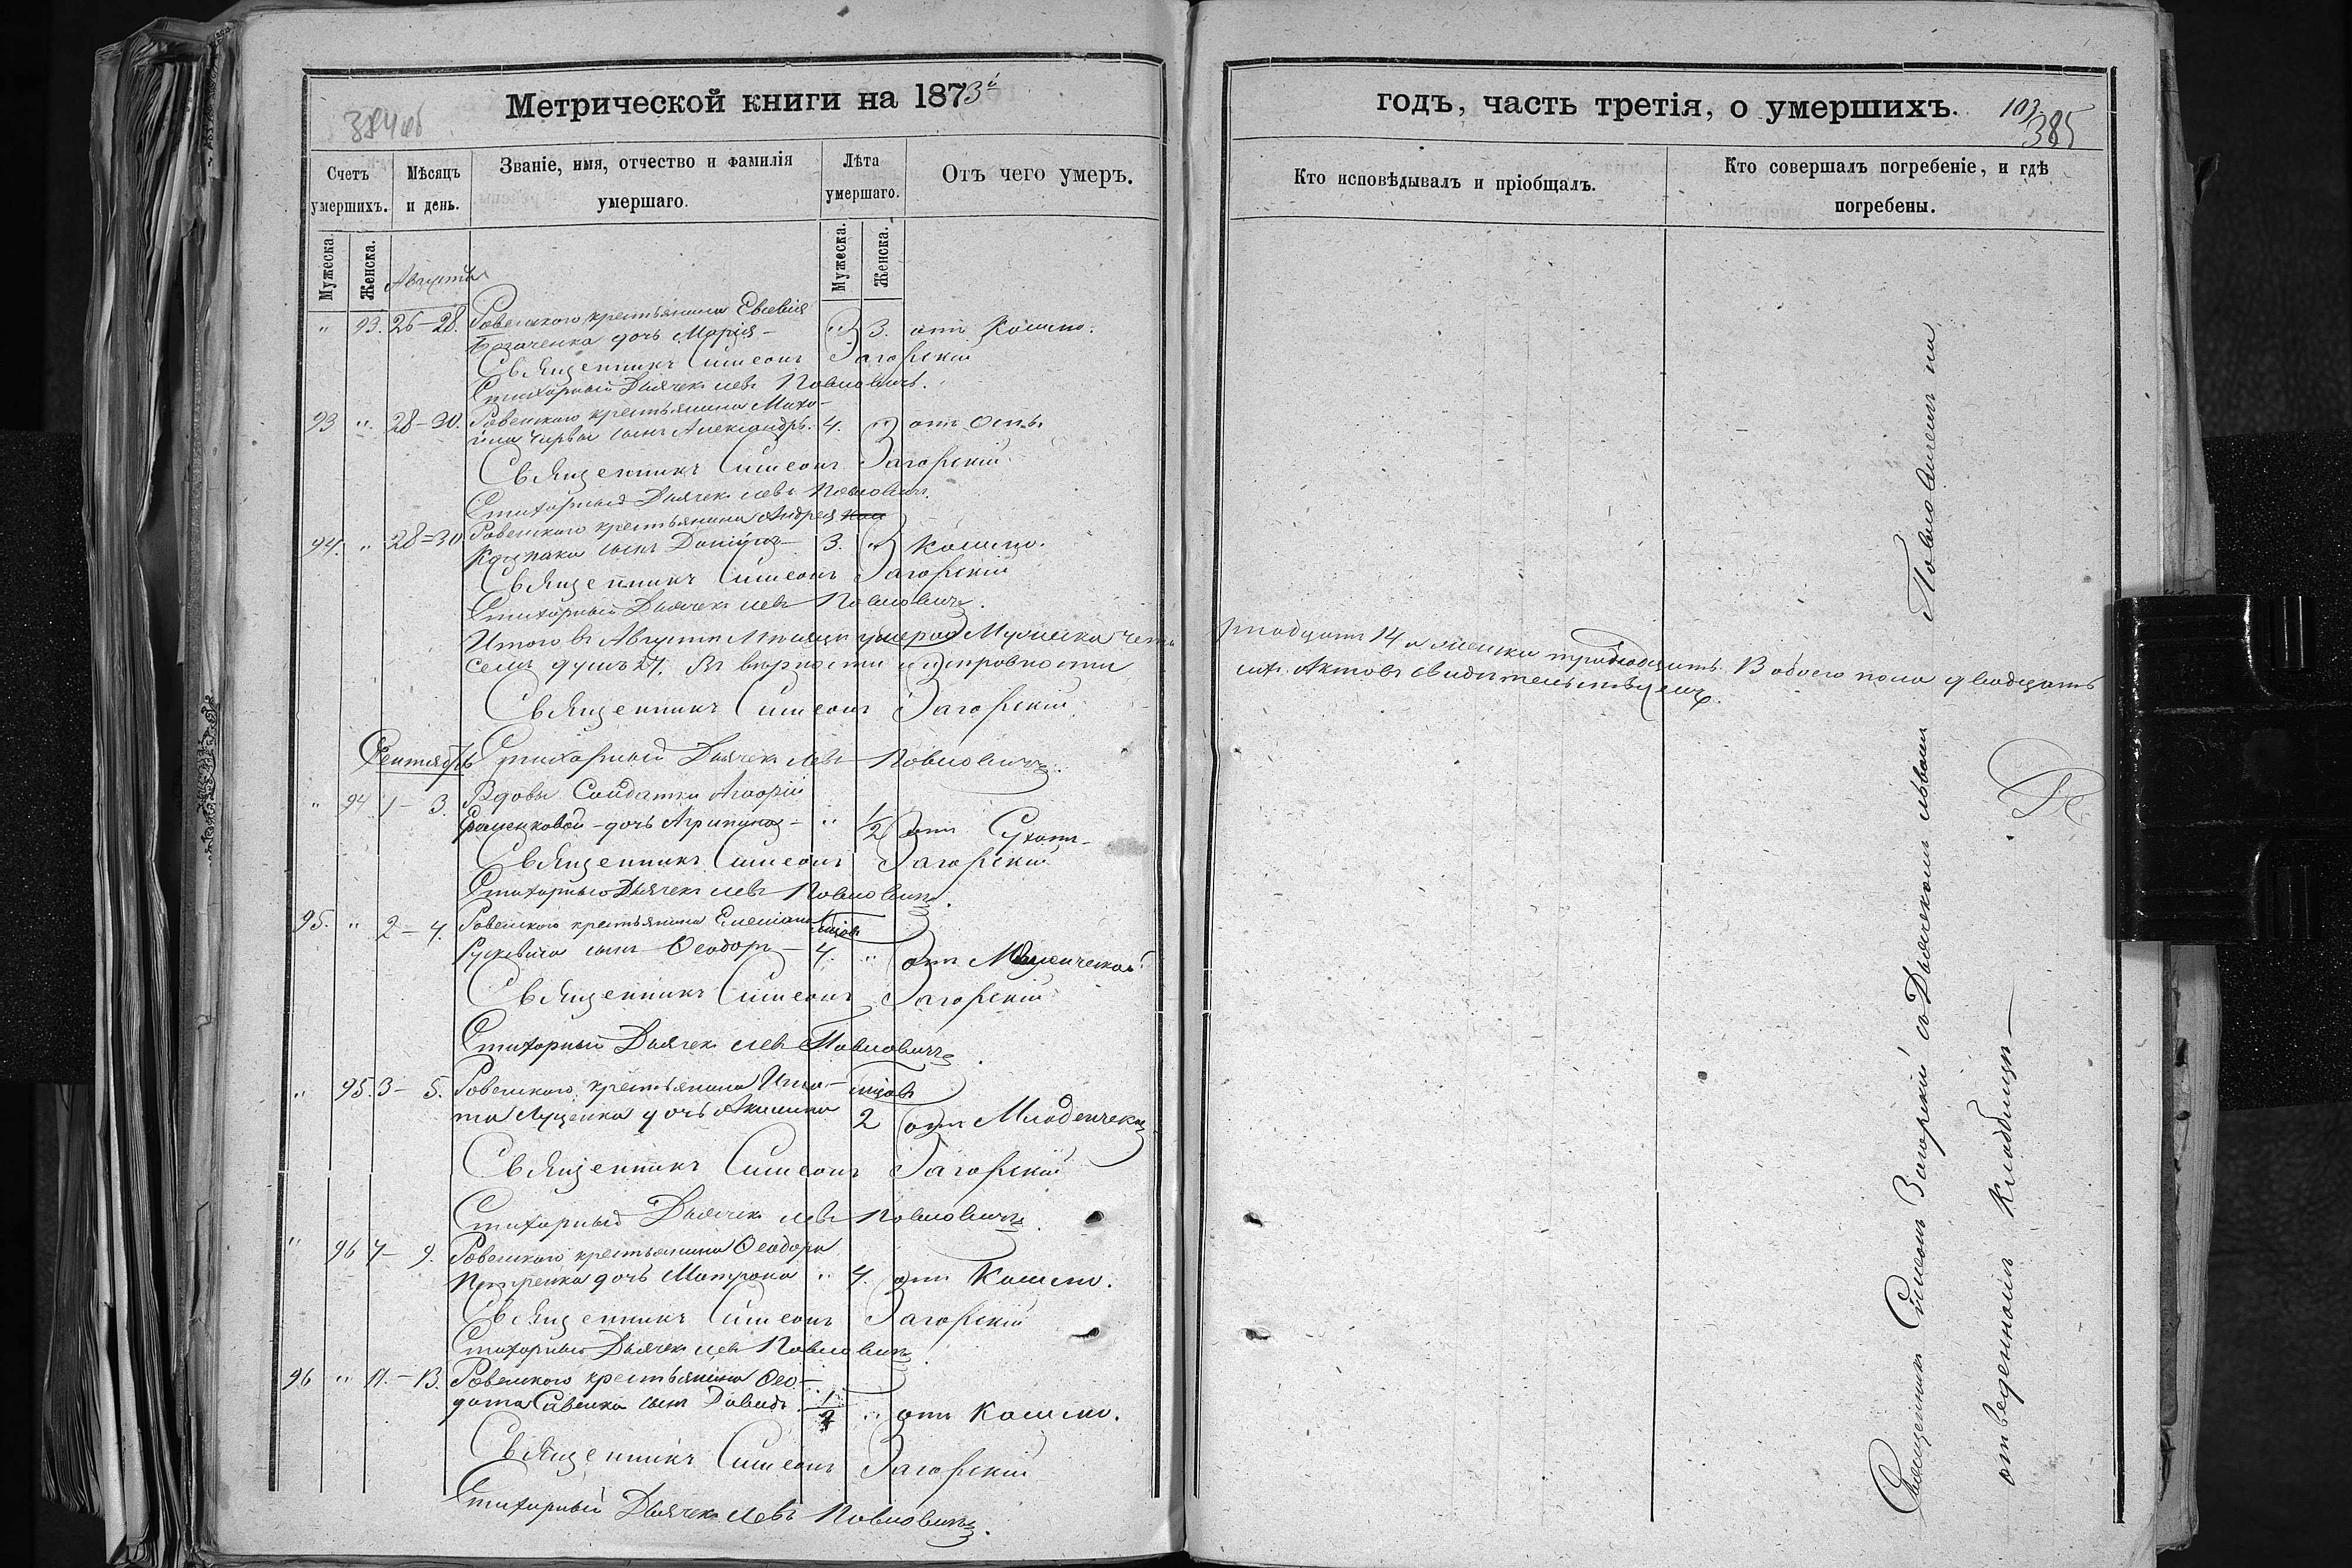 Метрической книги на 1873й
384 об
Счетъ умершихъ.
Мѣсяцъ и день.
Званіе, имя, отчество и фамилія умершаго.
Лѣта умершаго.
Отъ чего умеръ.
Мужеска.
Женска.
Мужеска.
Женска.
Августъ
" 93. 26–28. Ровенскаго крестьянина Евсевія
дочь Марія – " 3. отъ Кашлю.
Священникъ Симеонъ Загорскій
Стихарный Дьячекъ Левъ Павловичъ.
93 " 28–30. Ровенскаго крестьянина Миха-
ила сынъ Александръ. 4. " отъ Оспы
Священникъ Симеонъ Загорскій
Стихарный Дьячекъ Левъ Павловичъ.
Ровенскаго крестьянина Андрея
94. " 28–30 сынъ 3. " Кашлю.
Священникъ Симеонъ Загорскій
Стихарный Дьячекъ Левъ Павловичъ.
Итого въ Августѣ Мѣсяцѣ умерло Мужеска четы
семь душъ 27. Въ вѣрности и исправности
Священникъ Симеонъ Загорскій
Сентябрь Стихарный Дьячекъ Левъ Павловичъ.
" 94 1– 3. Вдовы Солдатки
дочь Агрипина – " 1/2 отъ Сухотъ
Священникъ Симеонъ Загорскій
Стихарный Дьячекъ Левъ Павловичъ.
95. " 2– 4. Ровенскаго крестьянина
сынъ Ѳеодоръ – 4. " отъ
Священникъ Симеонъ Загорскій
Стихарный Дьячекъ Левъ Павловичъ.
" 95. 3– 5. Ровенскаго крестьянина Игна-
та Луценка дочь Акилина 2 отъ Младенческ
Священникъ Симеонъ Загорскій
Стихарный Дьячекъ Левъ Павловичъ.
" 96 7– 9. Ровенскаго крестьянина Ѳеодора
Петренка дочь Матрона " 4. отъ Кашлю.
Священникъ Симеонъ Загорскій
Стихарный Дьячекъ Левъ Павловичъ
96 " 11.–13. Ровенскаго крестьянина Ѳео-
дота Савенка сынъ Давидъ. 1/2 " отъ Кашлю.
Священникъ Симеонъ Загорскій
Стихарный Дьячекъ Левъ Павловичъ.
годъ, часть третія, о умершихъ.
103
385
Кто исповѣдывалъ и пріобщалъ.
Кто совершалъ погребеніе, и гдѣ погребены.
рнадцать 14 а женска тринадцать В обоего пола двадцать
сихъ Актовъ свидѣтельствуемъ.
Священникъ Симеонъ Загорскій съ Дьячекомъ Львомъ Павловичемъ на
отведенномъ Кладбищѣ –